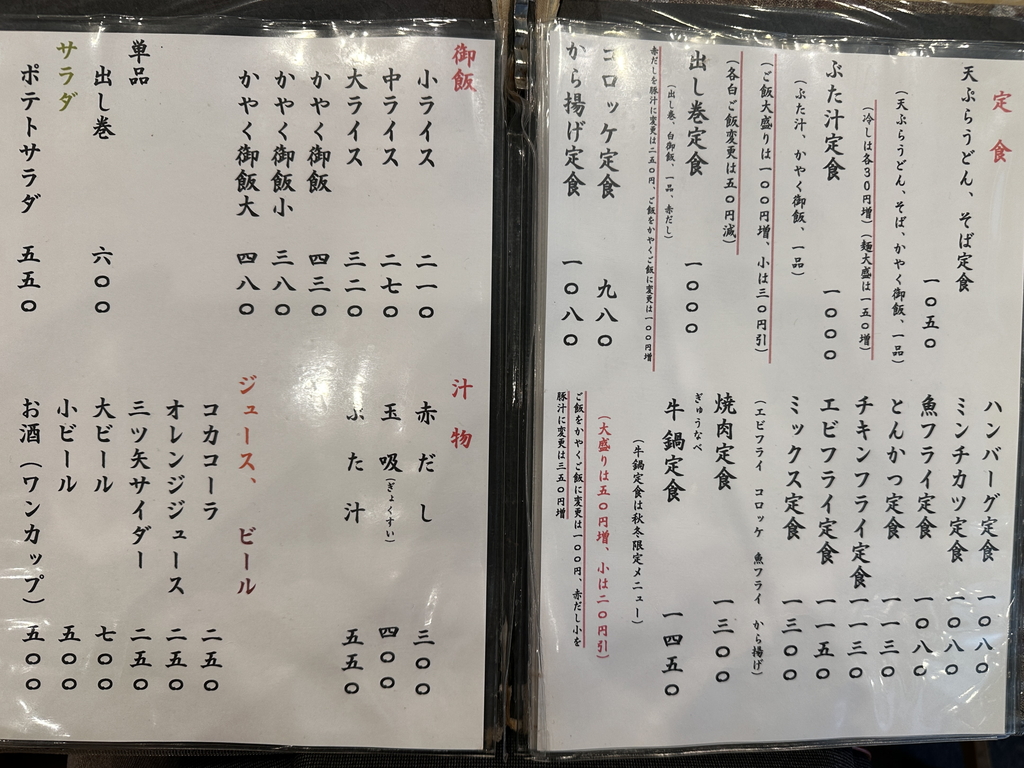 定食
天ぷらうどん、そば定食 一〇五〇
(天ぷらうどん、そば、かやく御飯、一品)
(冷しは各30円増)(麺大盛は一五〇増)
ぶた汁定食 一〇〇〇
(ぶた汁、かやく御飯、一品)
(ご飯大盛りは一〇〇円増、小は三〇円引)
(各白ご飯変更は五〇円減)
出し巻定食 一〇〇〇
(出し巻、白御飯、一品、赤だし)
赤だしを豚汁に変更は二五〇円、ご飯をかやくご飯に変更は一〇〇円増
コロッケ定食 九八〇
から揚げ定食 一〇八〇
ハンバーグ定食 一〇八〇
ミンチカツ定食 一〇八〇
魚フライ定食 一〇八〇
とんかつ定食 一一三〇
チキンフライ定食 一一三〇
エビフライ定食 一一五〇
ミックス定食 一三〇〇
(エビフライ コロッケ 魚フライ から揚げ)
焼肉定食 一三〇〇
ぎゅうなべ
牛鍋定食 一四五〇
(牛鍋定食は秋冬限定メニュー)
(大盛りは五〇円増、小は二〇円引)
ご飯をかやくご飯に変更は一〇〇円、赤だし小を
豚汁に変更は三五〇円増
御飯
小ライス 二一〇
中ライス 二七〇
大ライス 三二〇
かやく御飯 四三〇
かやく御飯小 三八〇
かやく御飯大 四八〇
単品
出し巻 六〇〇
サラダ
ポテトサラダ 五五〇
汁物
赤だし 三〇〇
玉吸(ぎょくすい) 四〇〇
ぶた汁 五五〇
ジュース、ビール
コカコーラ 二五〇
オレンジジュース 二五〇
三ツ矢サイダー 二五〇
大ビール 七〇〇
小ビール 五〇〇
お酒(ワンカップ) 五〇〇